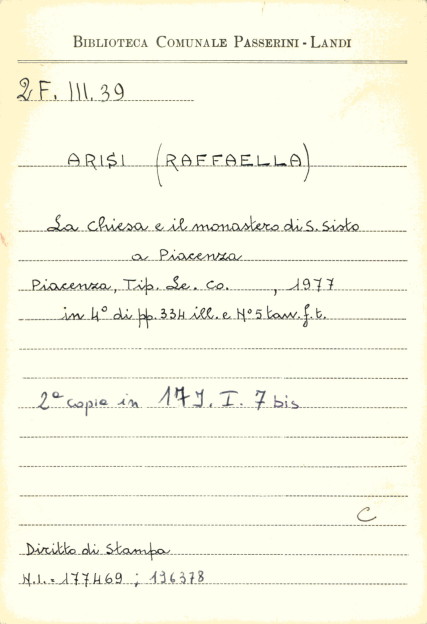 BIBLIOTECA COMUNALE PASSERINI - LANDI
2F. III. 39
ARISI (RAFFAELLA)
La Chiesa e il monastero di S. Sisto
a Piacenza
Piacenza, Tip. Le. Co. , 1977
in 4° di pp. 334 ill. e N° 5 tav. f. t.
2ª copia in 17J. I. 7 bis
C
Diritto di Stampa
N.I. = 177469 ; 196378